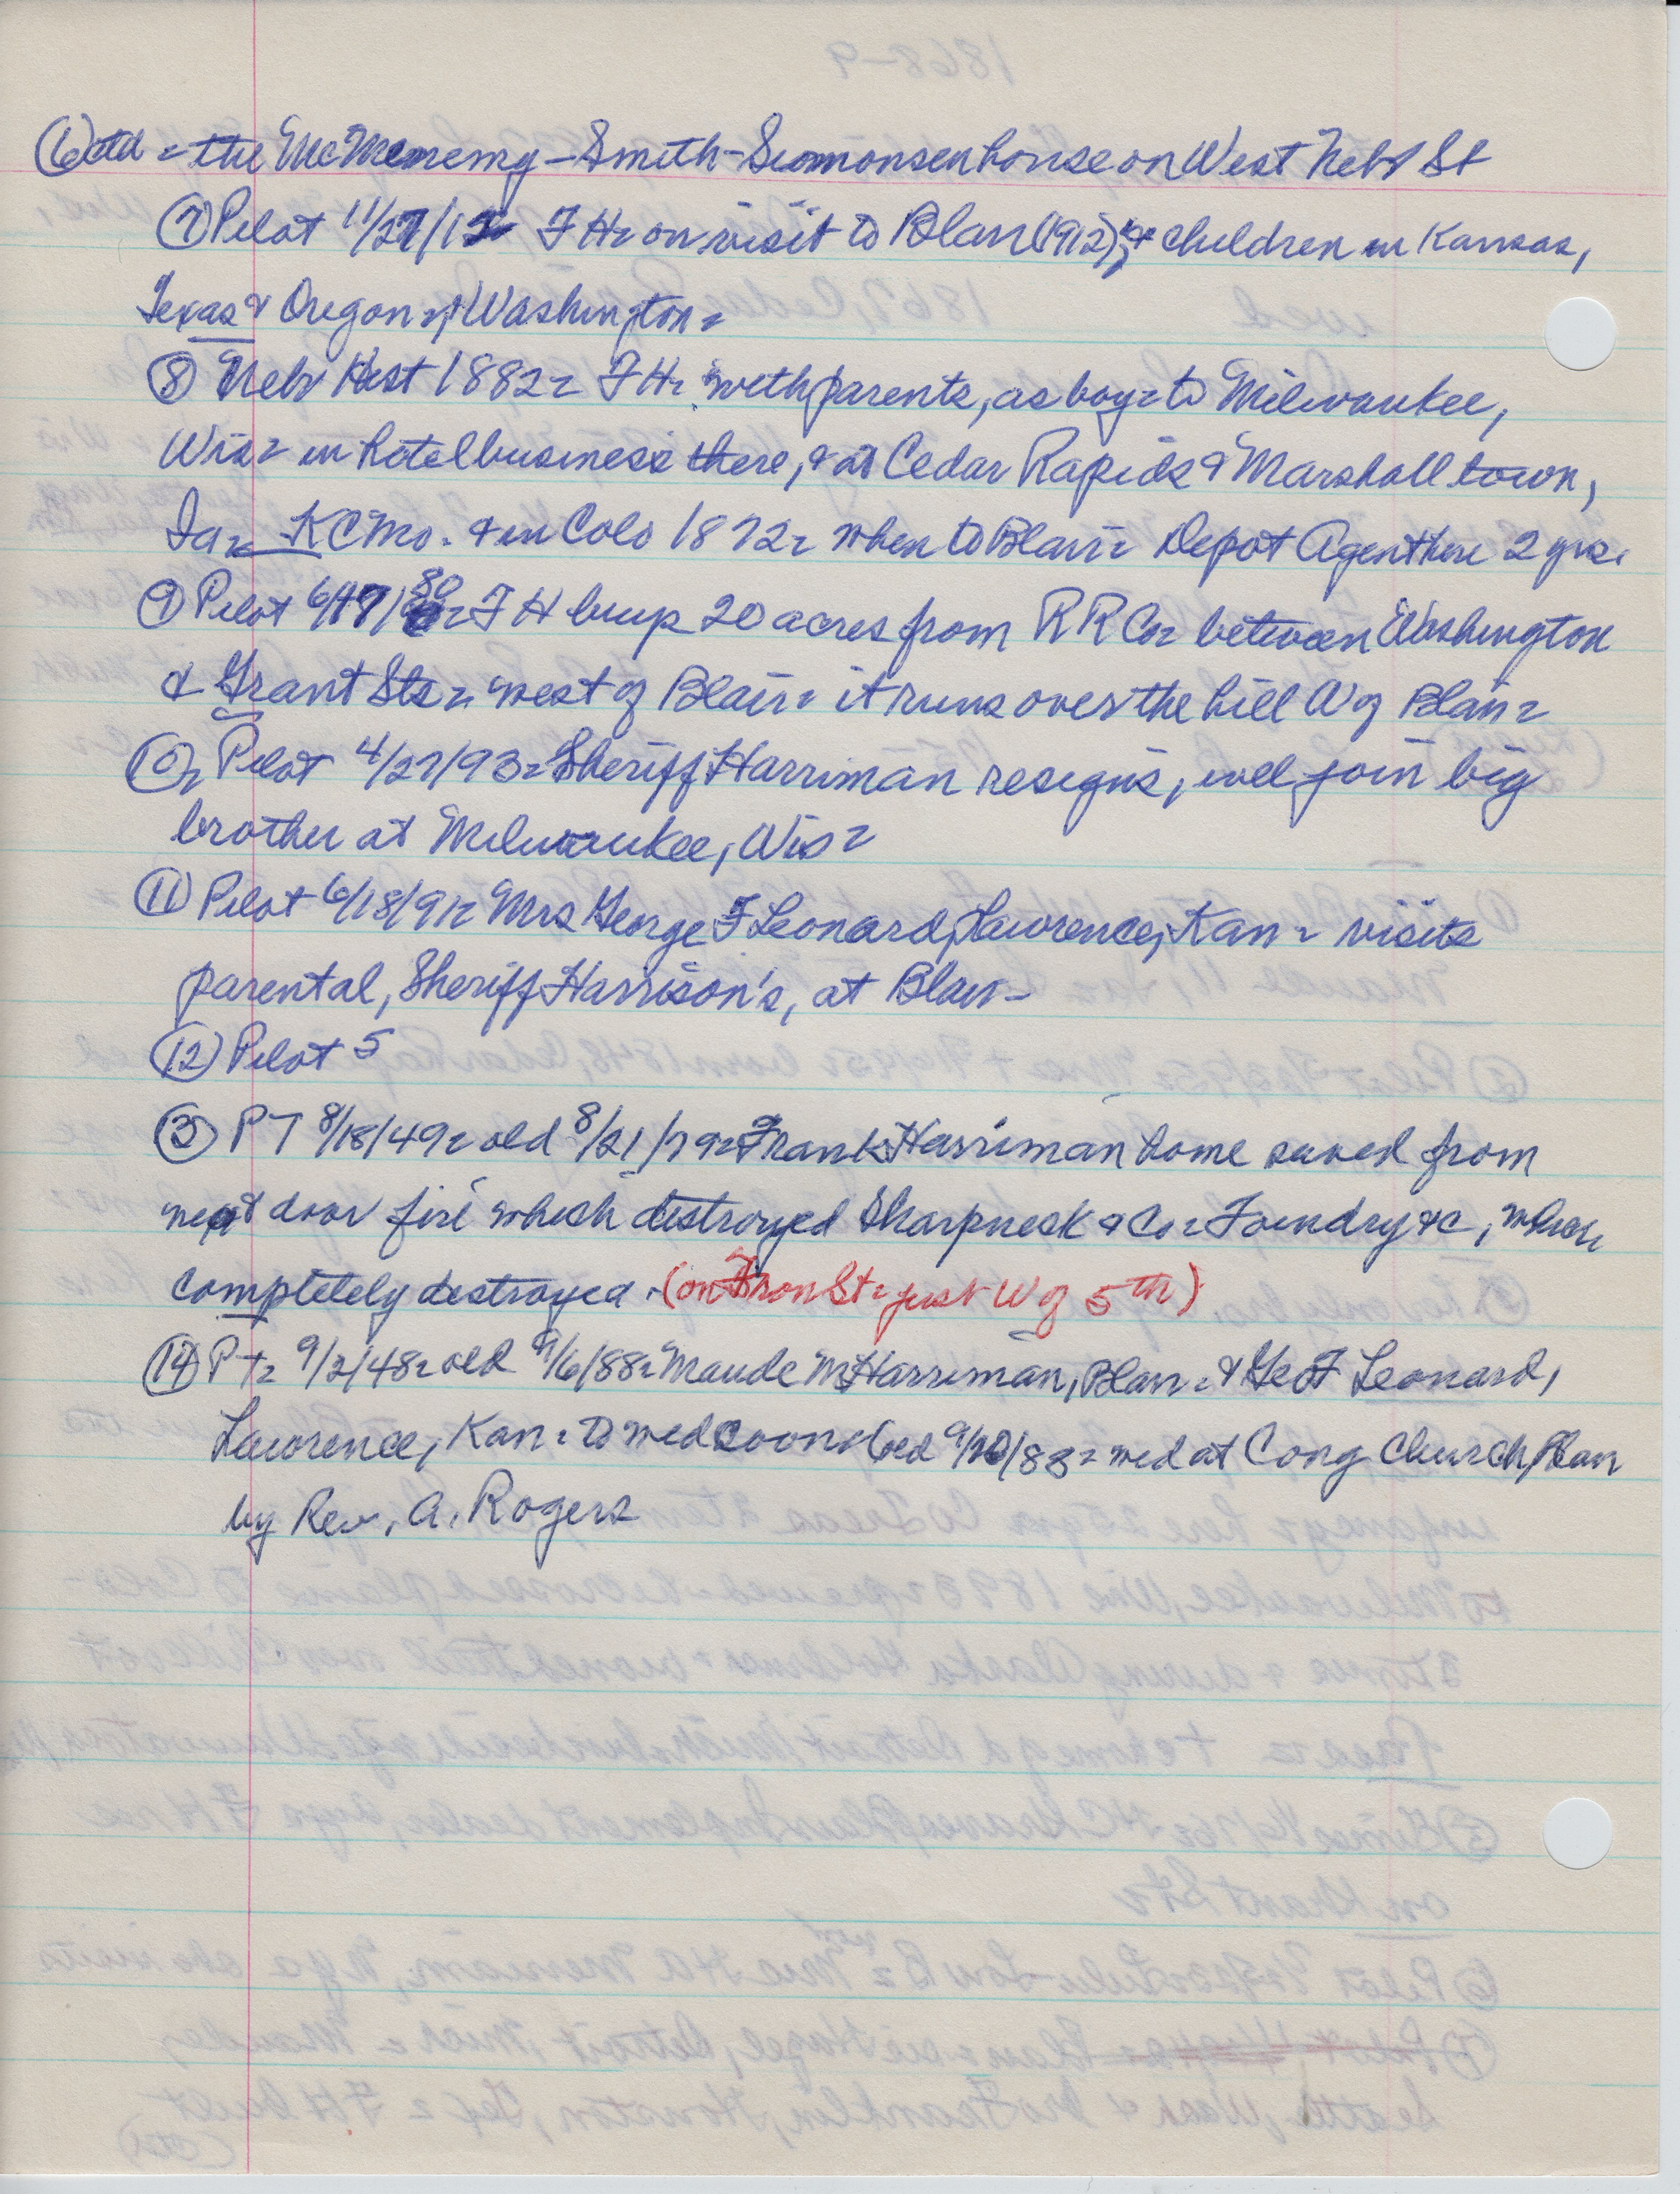 ⑥ ctd - the McMenemy - Smith - Simonsen house on West Nebr St
⑦ Pilot 11/27/12 - F H - on visit to Blair (1912) - children in Kansas,
Texas & Oregon & Washington -
⑧ Nebr Hist 1882 - F H - with parents, as boy - to Milwaukee,
Wis - in hotel business there, & at Cedar Rapids & Marshalltown,
Ia - KC Mo. & in Colo 1872 - when to Blair - Depot Agent here 2 yrs.
⑨ Pilot 6/17/80 - F H buys 20 acres from R R Co - between Washington
& Grant Sts - west of Blair - it runs over the hill W of Blair -
⑩ - Pilot 4/27/93 - Sheriff Harriman resigns, will join big
brother at Milwaukee, Wis -
⑪ Pilot 6/18/91 - Mrs George F Leonard, Lawrence, Kan - visits
parental, Sheriff Harrison's, at Blair -
⑫ Pilot 5
⑬ P T 8/18/49 - old 8/21/79 - Frank Harriman home saved from
next door fire which destroyed Sharpnesk & Co - Foundry &c,
completely destroyed. (on Fron St - just W of 5th)
⑭ P T - 9/2/48 - old 9/6/88 - Maude M Harriman, Blair - & Geo F Leonard,
Lawrence, Kan - to wed soon 9/20/88 - wed at Cong Church, Blair
by Rev. A. Rogers